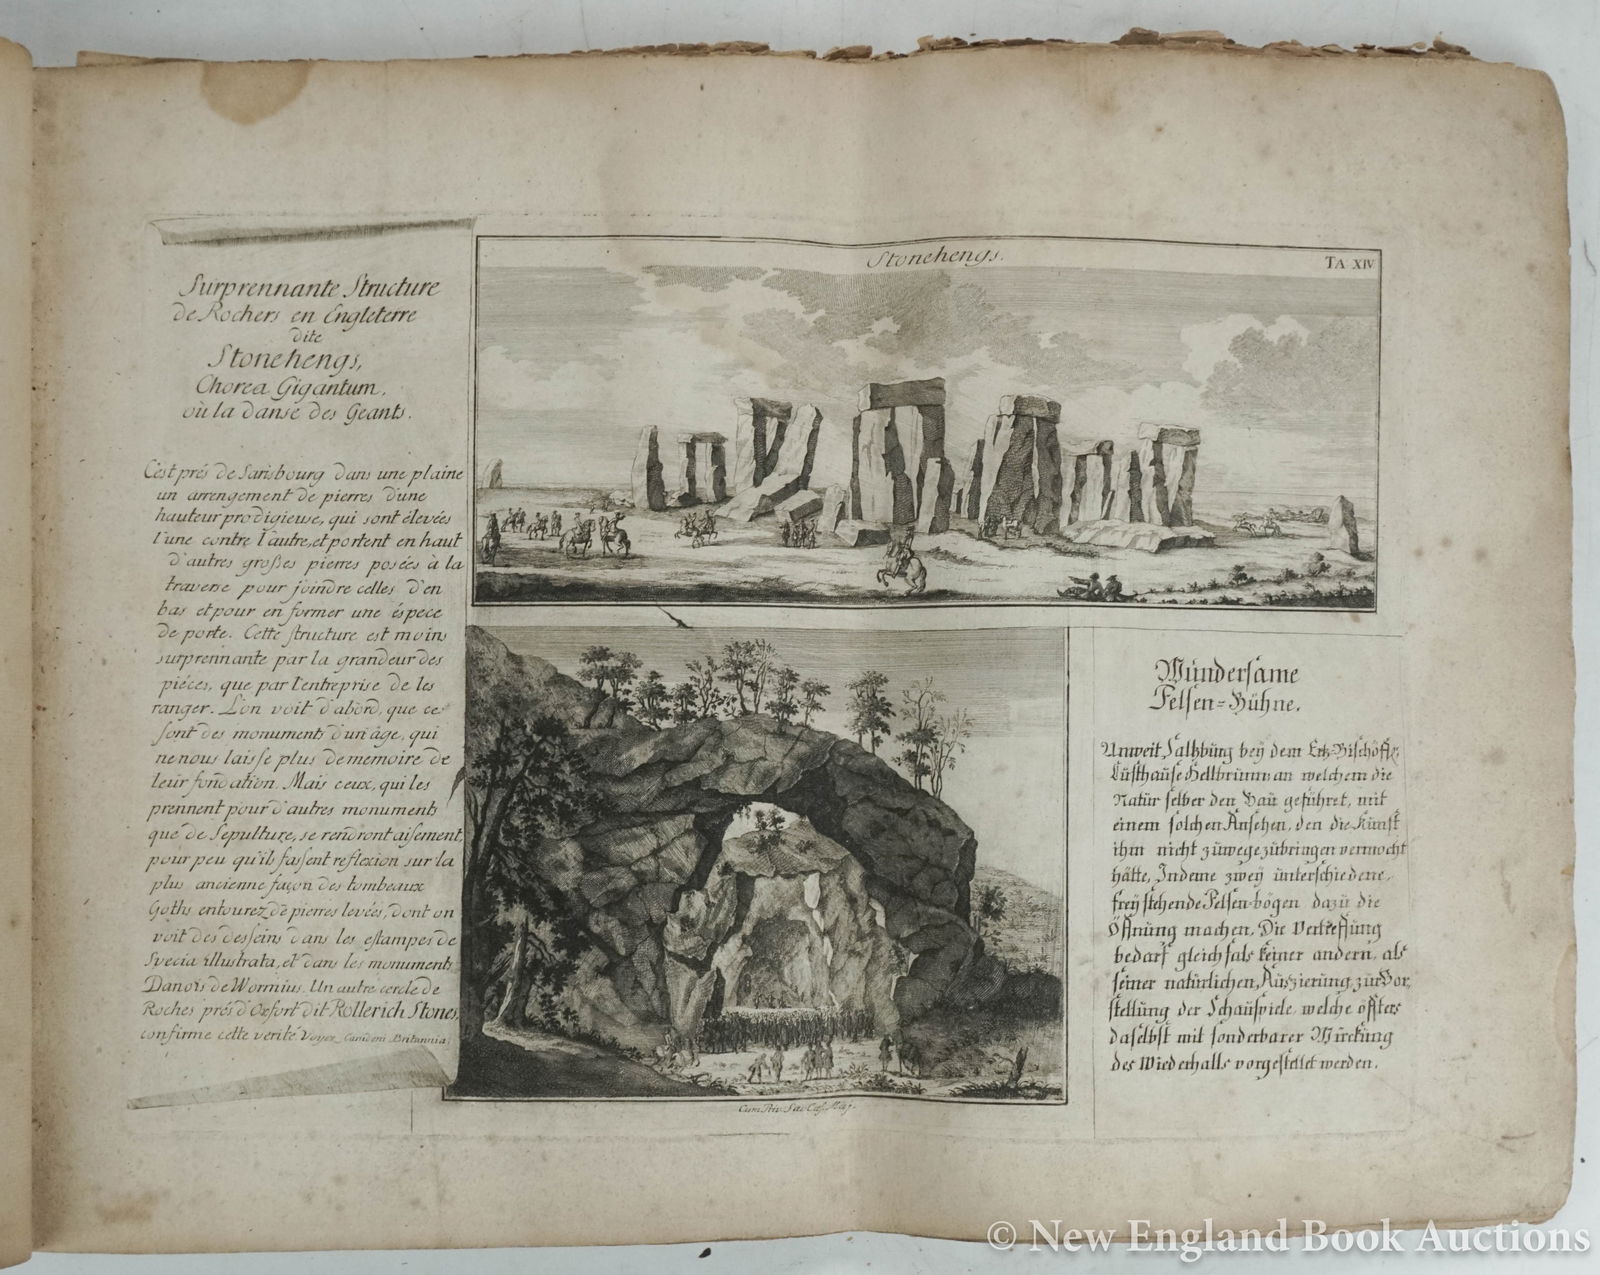 Surprennante Structure
de Rochers en Engleterre
dite
Stonehengs,
Chorea Gigantum,
où la danse des Geants.
C'est prés de Sarisbourg dans une plaine
un arrengement de pierres d'une
hauteur prodigieuse, qui sont élevées
l'une contre l'autre, et portent en haut
d'autres großes pierres posées à la
traverse pour joindre celles d'en
bas et pour en former une éspece
de porte. Cette structure est moins
surprennante par la grandeur des
piéces, que par l'entreprise de les
ranger. L'on voit d'abord, que ce
sont des monuments d'un âge, qui
ne nous laisse plus de memoire de
leur fondation. Mais ceux, qui les
prennent pour d'autres monuments
que de Sepulture, se rendront aisement,
pour peu qu'ils fassent reflexion sur la
plus ancienne façon des tombeaux
Goths entourez de pierres levées, dont on
voit des desseins dans les estampes de
Svecia illustrata, et dans les monuments
Danois de Wormius. Un autre cercle de
Roches prés d'Oxfort dit Rollerich Stones,
confirme cette verité. Voyez Camdeni Britannia.
Stonehengs.
TA. XIV
Wundersame
Felsen=Bühne.
Unweit Saltzburg bey dem Ertz-Bischöffl.
Lusthause Hellbrunn, an welchem die
Natur selber den Bau geführet, mit
einem solchen Ansehen, den die Kunst
ihm nicht zuwege zubringen vermocht
hätte, Indeme zwey unterschiedene,
freystehende Felsen-bögen dazu die
Öffnung machen. Die Vertieffung
bedarf gleichfals keiner andern, als
seiner natürlichen Auszierung, zur Vor,
stellung der Schauspiele, welche öffters
daselbst mit sonderbarer Würckung
des Wiederhalls vorgestellet werden.
Cum Priv. Sac. Caes. Maj.
© New England Book Auctions